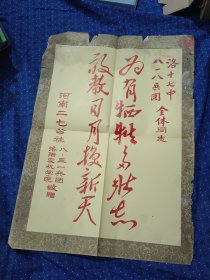 洛十七中
八一八兵团 全体同志
为有牺牲多壮志
敢教日月换新天
河南二七公社 八·三一兵团
洛阳农机学院 敬赠